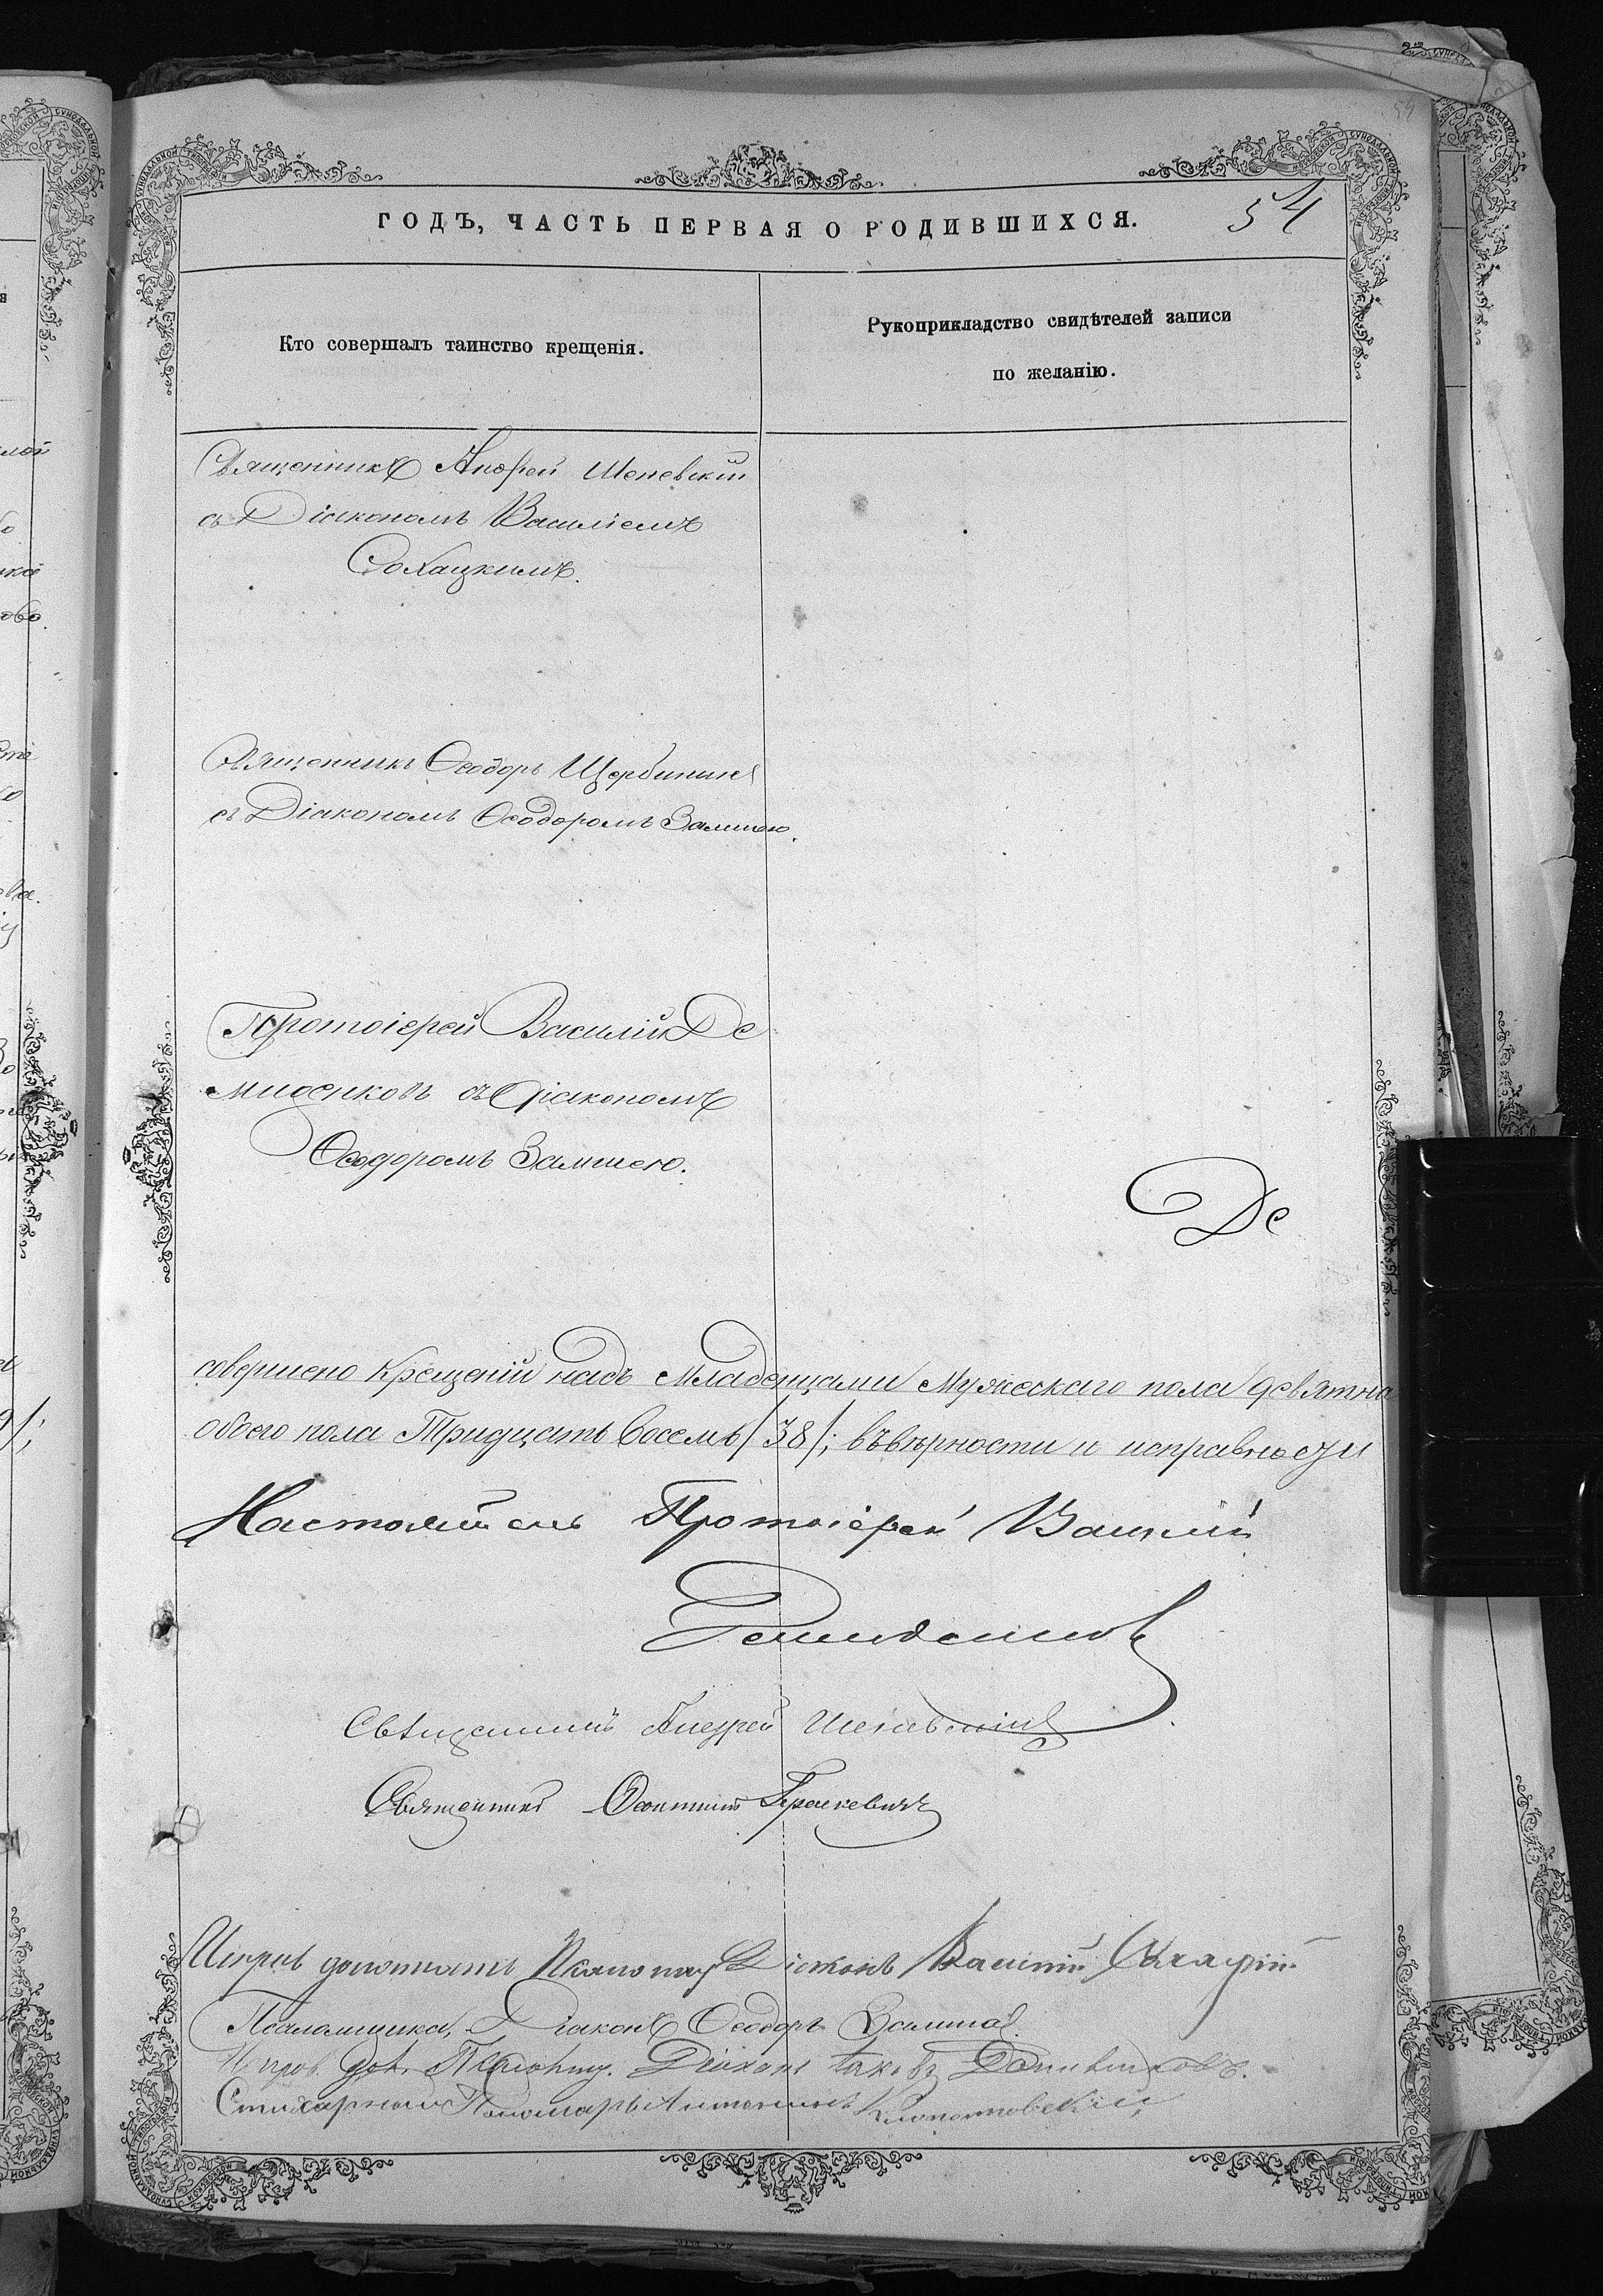 54
ГОДЪ, ЧАСТЬ ПЕРВАЯ О РОДИВШИХСЯ. 54
Кто совершалъ таинство крещенія.
Рукоприкладство свидѣтелей записи
по желанію.
Священникъ Андрей Шепевскій
съ Діакономъ Василіемъ
Сохацкимъ.
Священникъ Ѳеодоръ Щербининъ
съ Діакономъ Ѳеодоромъ Замшею.
Протоіерей Василій Де
миденковъ съ Діакономъ
Ѳеодоромъ Замшею.
Де
совершено крещеній надъ младенцами мужескаго пола девятна
обоего пола Тридцать восемь /38/; въ вѣрности и исправности
Настоятель Протоіерей Василій
Священникъ Андрей
Священникъ
Діаконъ Василій
Псаломщика, Діаконъ Ѳеодоръ Замша.
Діаконъ Іаковъ
Стихарный Пономарь